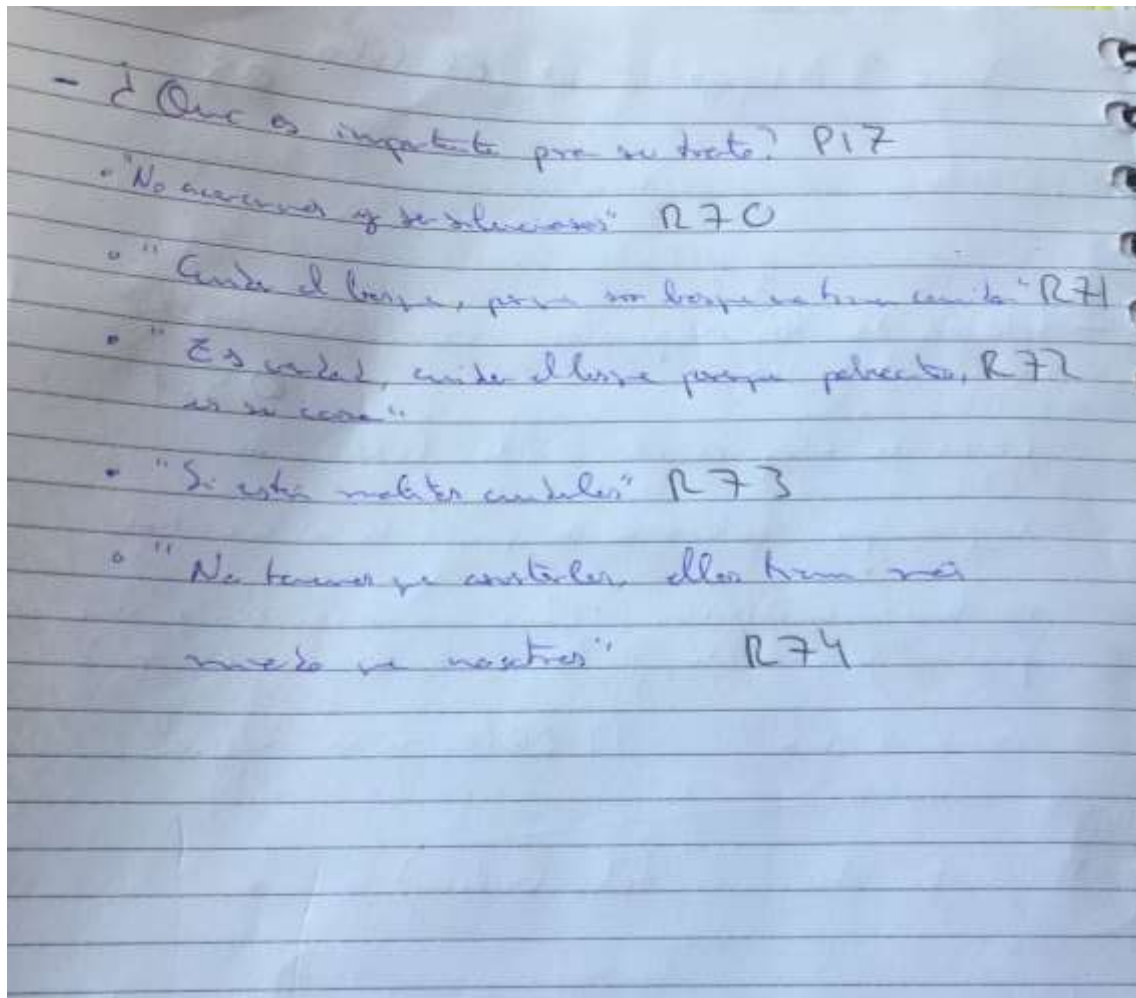 - ¿Que es importante para su trato? P17
• "No acercarnos y ser silenciosos" R70
• "Cuidar el bosque, porque sin bosque no tienen comida" R71
• "Es verdad, cuidar el bosque porque pobrecitos, R72
es su casa"
• "Si están malitos cuidarles" R73
• "No tenemos que asustarles, ellos tienen más
miedo que nosotros" R74